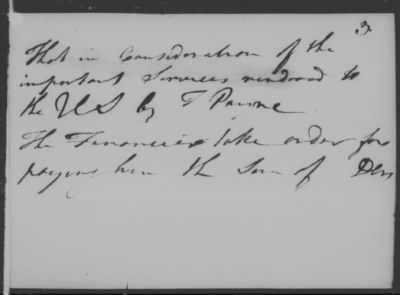 3
That in Consideration of the
important Services rendered to
the US by T Paine
The Financier take order for
paying him the Sum of Dlrs